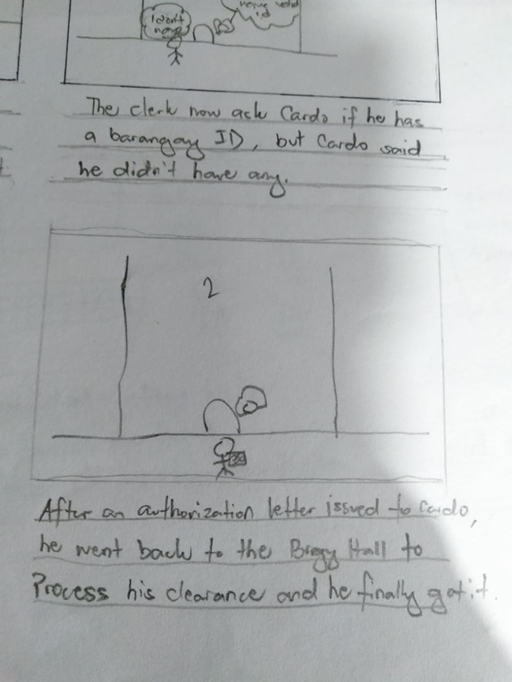 I don't
have
valid
id
The clerk now ask Cardo if he has
a barangay ID, but Cardo said
he didn't have any.
2
After an authorization letter issued to Cardo,
he went back to the Brgy Hall to
Process his clearance and he finally got it.